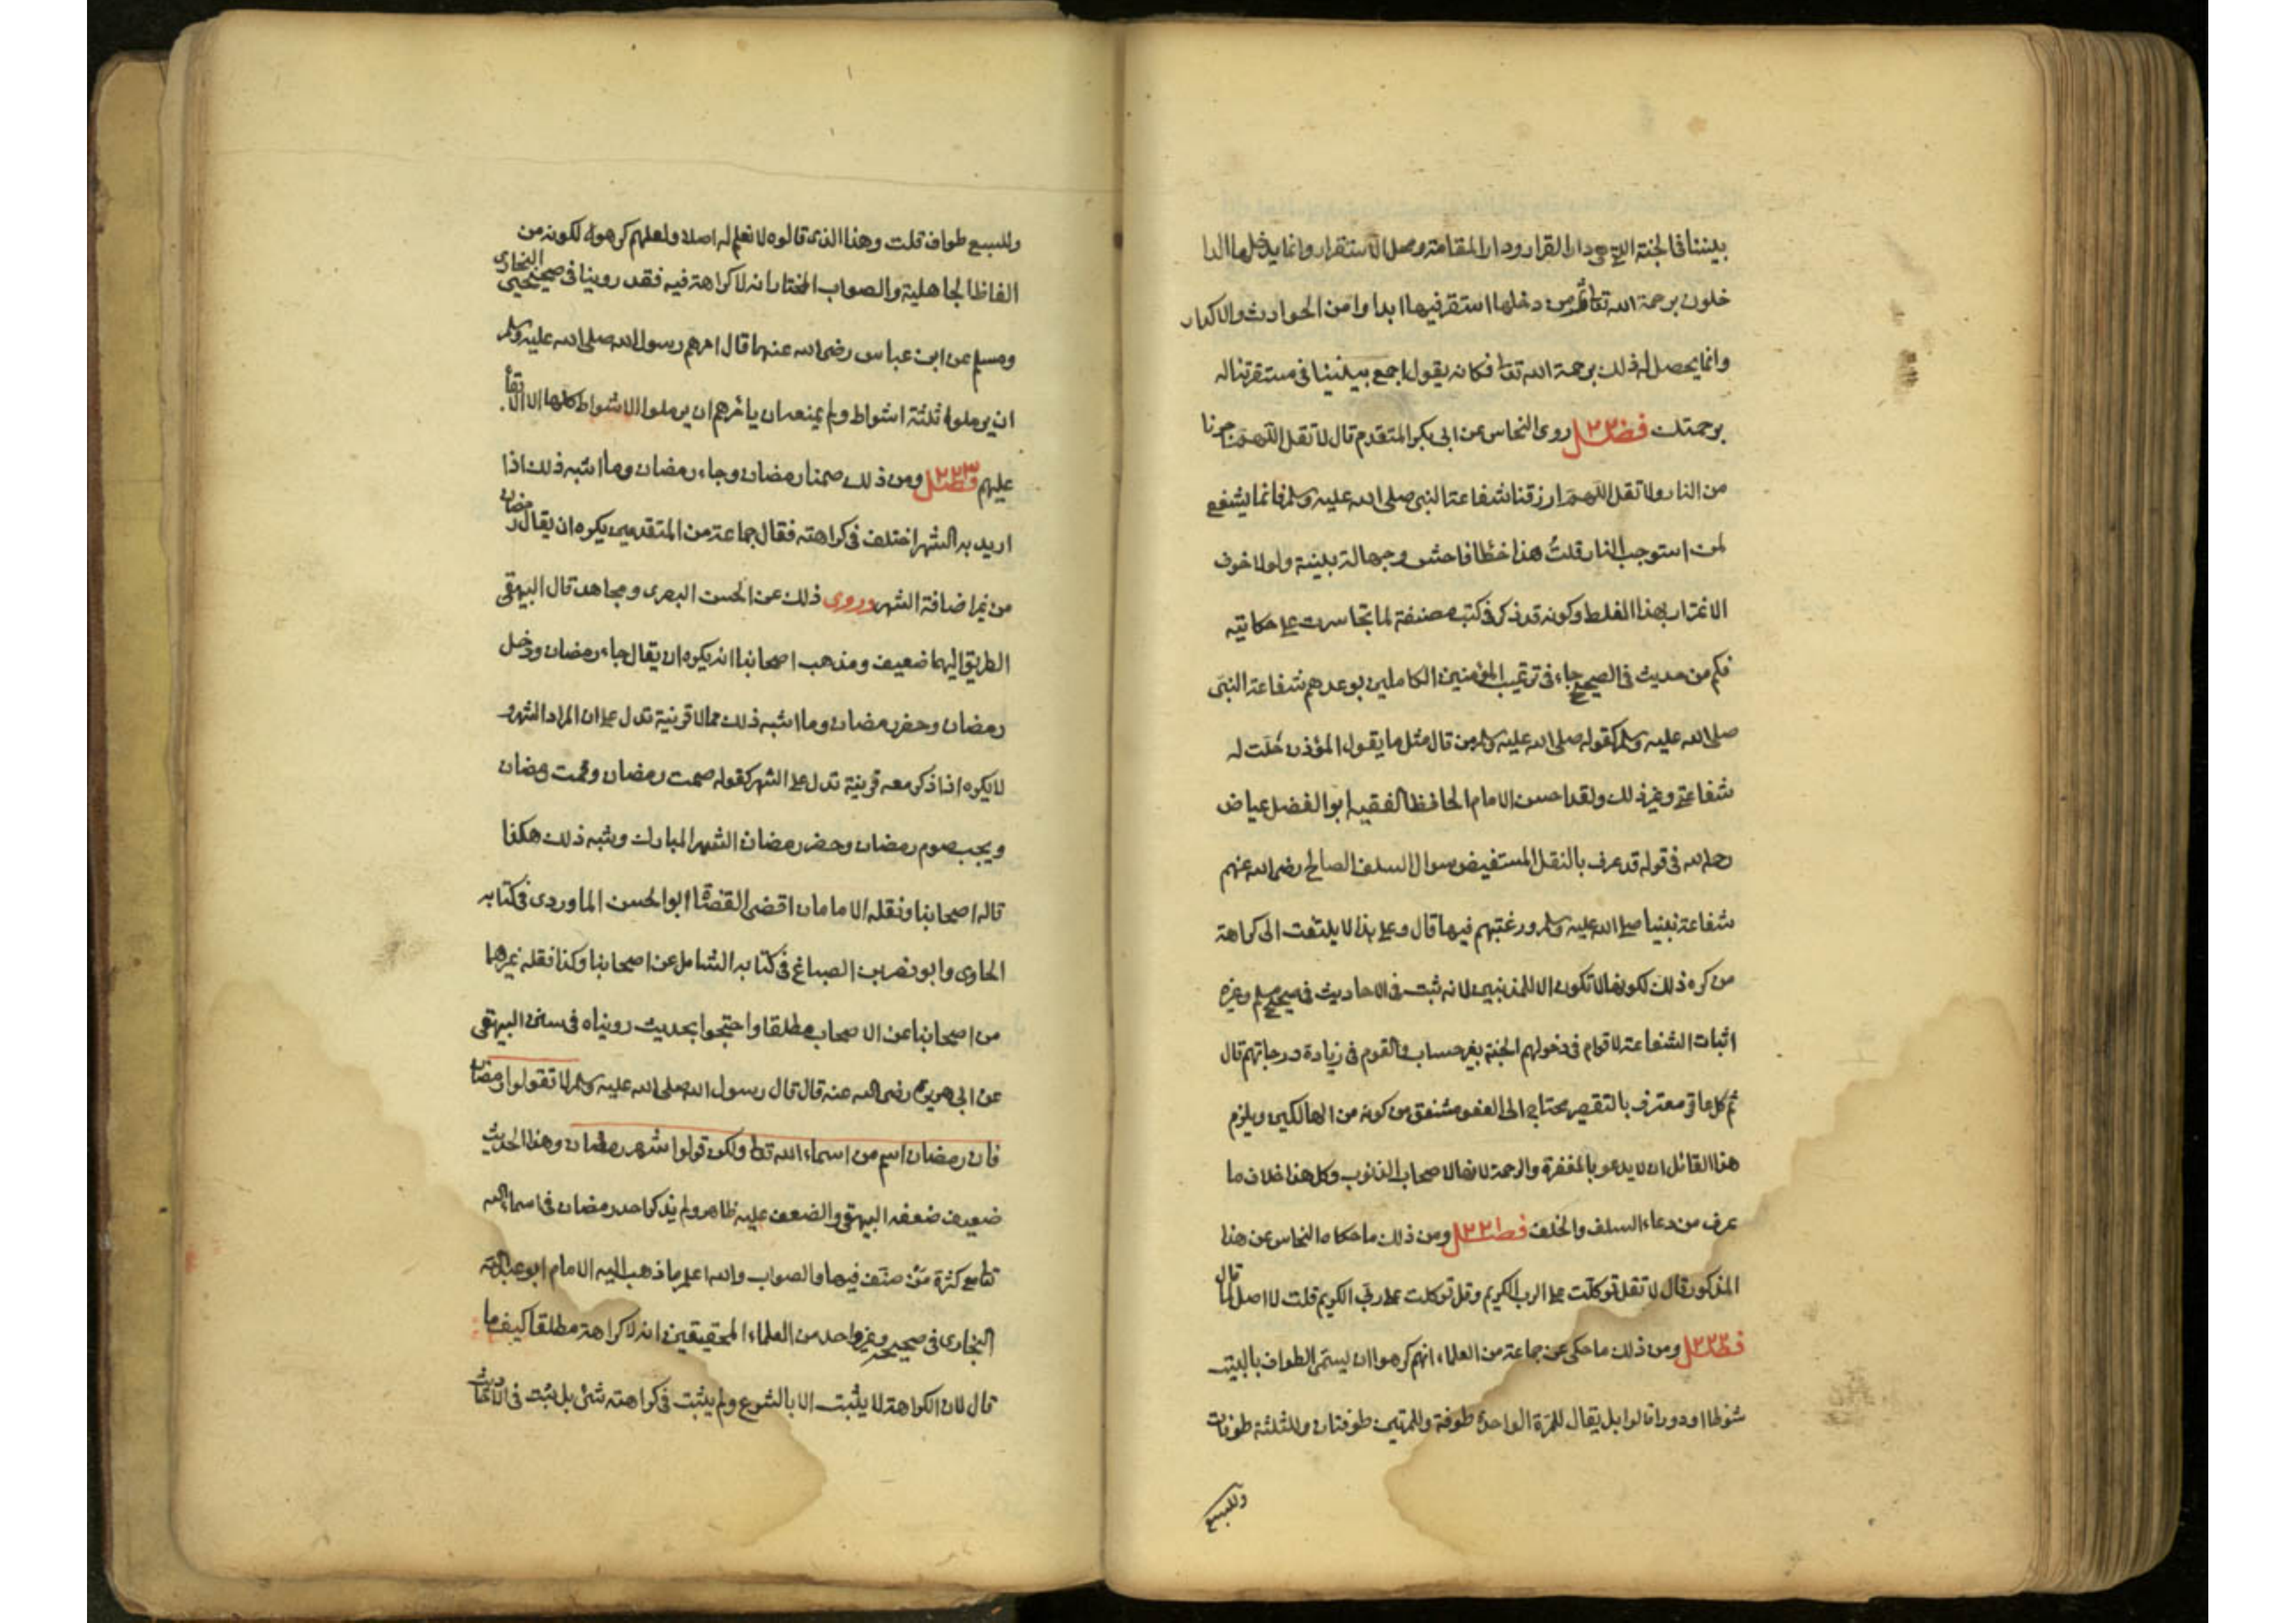 بيننا في الجنة التي هي دار القرار ودار المقامة ومحل الاستقرار وانما يدخلها الدا
خلون برحمة الله تعا ثم من دخلها استقر فيها ابدا وامن الحوادث والاكدار
وانما يحصل له ذلك برحمة الله تعا فكانه يقول اجمع بيننا في مستقر نناله
برحمتك فصل ٢٢٠ روى النحاس عن ابي بكر المتقدم قال لا تقل اللهم اجرنا
من النار ولا تقل اللهم ارزقنا شفاعة النبي صلى الله عليه وسلم فانما يشفع
لمن استوجب النار قلت هذا خطا فاحش وجهالة بينة ولولا خوف
الاغترار بهذا الغلط وكونه قد ذكر في كتب مصنفة لما تجاسرت على حكايته
فكم من حديث في الصحيح جاء في ترغيب المؤمنين الكاملين بوعدهم شفاعة النبي
صلى الله عليه وسلم كقوله صلى الله عليه وسلم من قال مثل ما يقول المؤذن حلت له
شفاعتي وغير ذلك ولقد احسن الامام الحافظ الفقيه ابوالفضل عياض
رحمه الله في قوله قد عرف بالنقل المستفيض سوال السلف الصالح رضى الله عنهم
شفاعة نبينا صلى الله عليه وسلم ورغبتهم فيها قال وعلى هذا لا يلتفت الى كراهة
من كره ذلك لكونها لا تكون الا للمذنبين لانه ثبت في الاحاديث في صحيح مسلم وغيره
اثبات الشفاعة لاقوام في دخولهم الجنة بغير حساب ولقوم في زيادة درجاتهم قال
ثم كل عاقل معترف بالتقصير محتاج الى العفو مشفق من كونه من الهالكين ويلزم
هذا القائل ان لا يدعو بالمغفرة والرحمة لانها لاصحاب الذنوب وكل هذا خلاف ما
عرف من دعاء السلف والخلف فصل ٢٢١ ومن ذلك ما حكاه النحاس عن هذا
المذكور قال لا تقل توكلت على الرب الكريم وقل توكلت على ربي الكريم قلت لا اصل لما قال
فصل ٢٢٢ ومن ذلك ما حكى عن جماعة من العلماء انهم كرهوا ان يسمى الطواف بالبيت
شوطا او دورا قالوا بل يقال للمرة الواحدة طوفة وللمرتين طوفتان وللثلثة طوفات
وللسبع
وللسبع طواف قلت وهذا الذي قالوه لا نعلم له اصلا ولعلهم كرهوه لكونه من
الفاظ الجاهلية والصواب المختار انه لا كراهة فيه فقد روينا في صحيحي البخاري
ومسلم عن ابن عباس رضى الله عنهما قال امرهم رسول الله صلى الله عليه وسلم
ان يرملوا ثلثة اشواط ولم يمنعه ان يأمرهم ان يرملوا الاشواط كلها الا الابقا
عليهم فصل ٢٢٣ ومن ذلك صمنا رمضان وجاء رمضان وما اشبه ذلك اذا
اريد به الشهر اختلف في كراهته فقال جماعة من المتقدمين يكره ان يقال رمضان
من غير اضافة الشهر وروى ذلك عن الحسن البصرى ومجاهد قال البيهقي
الطريق اليهما ضعيف ومذهب اصحابنا انه يكره ان يقال جاء رمضان ودخل
رمضان وحضر رمضان وما اشبه ذلك مما لا قرينة تدل على ان المراد الشهر و
لا يكره اذا ذكر معه قرينة تدل على الشهر كقوله صمت رمضان وقمت رمضان
ويجب صوم رمضان وحضر رمضان الشهر المبارك وشبه ذلك هكذا
قاله اصحابنا ونقله الامامان اقضى القضاة ابوالحسن الماوردي في كتابه
الحاوى وابو نصر بن الصباغ في كتابه الشامل عن اصحابنا وكذا نقله غيرهما
من اصحابنا عن الاصحاب مطلقا واحتجوا بحديث رويناه في سنن البيهقي
عن ابي هريرة رضى الله عنه قال قال رسول الله صلى الله عليه وسلم لا تقولوا رمضان
فان رمضان اسم من اسماء الله تعا ولكن قولوا شهر رمضان وهذا الحديث
ضعيف ضعفه البيهقي والضعف عليه ظاهر ولم يذكر احد رمضان في اسماء الله
تعا مع كثرة من صنف فيها والصواب والله اعلم ما ذهب اليه الامام ابو عبدالله
البخاري في صحيحه وغير واحد من العلماء المحقيقين انه لا كراهة مطلقا كيف ما
قال لان الكراهة لا يثبت الا بالشرع ولم يثبت في كراهته شئ بل ثبت في الاحاديث